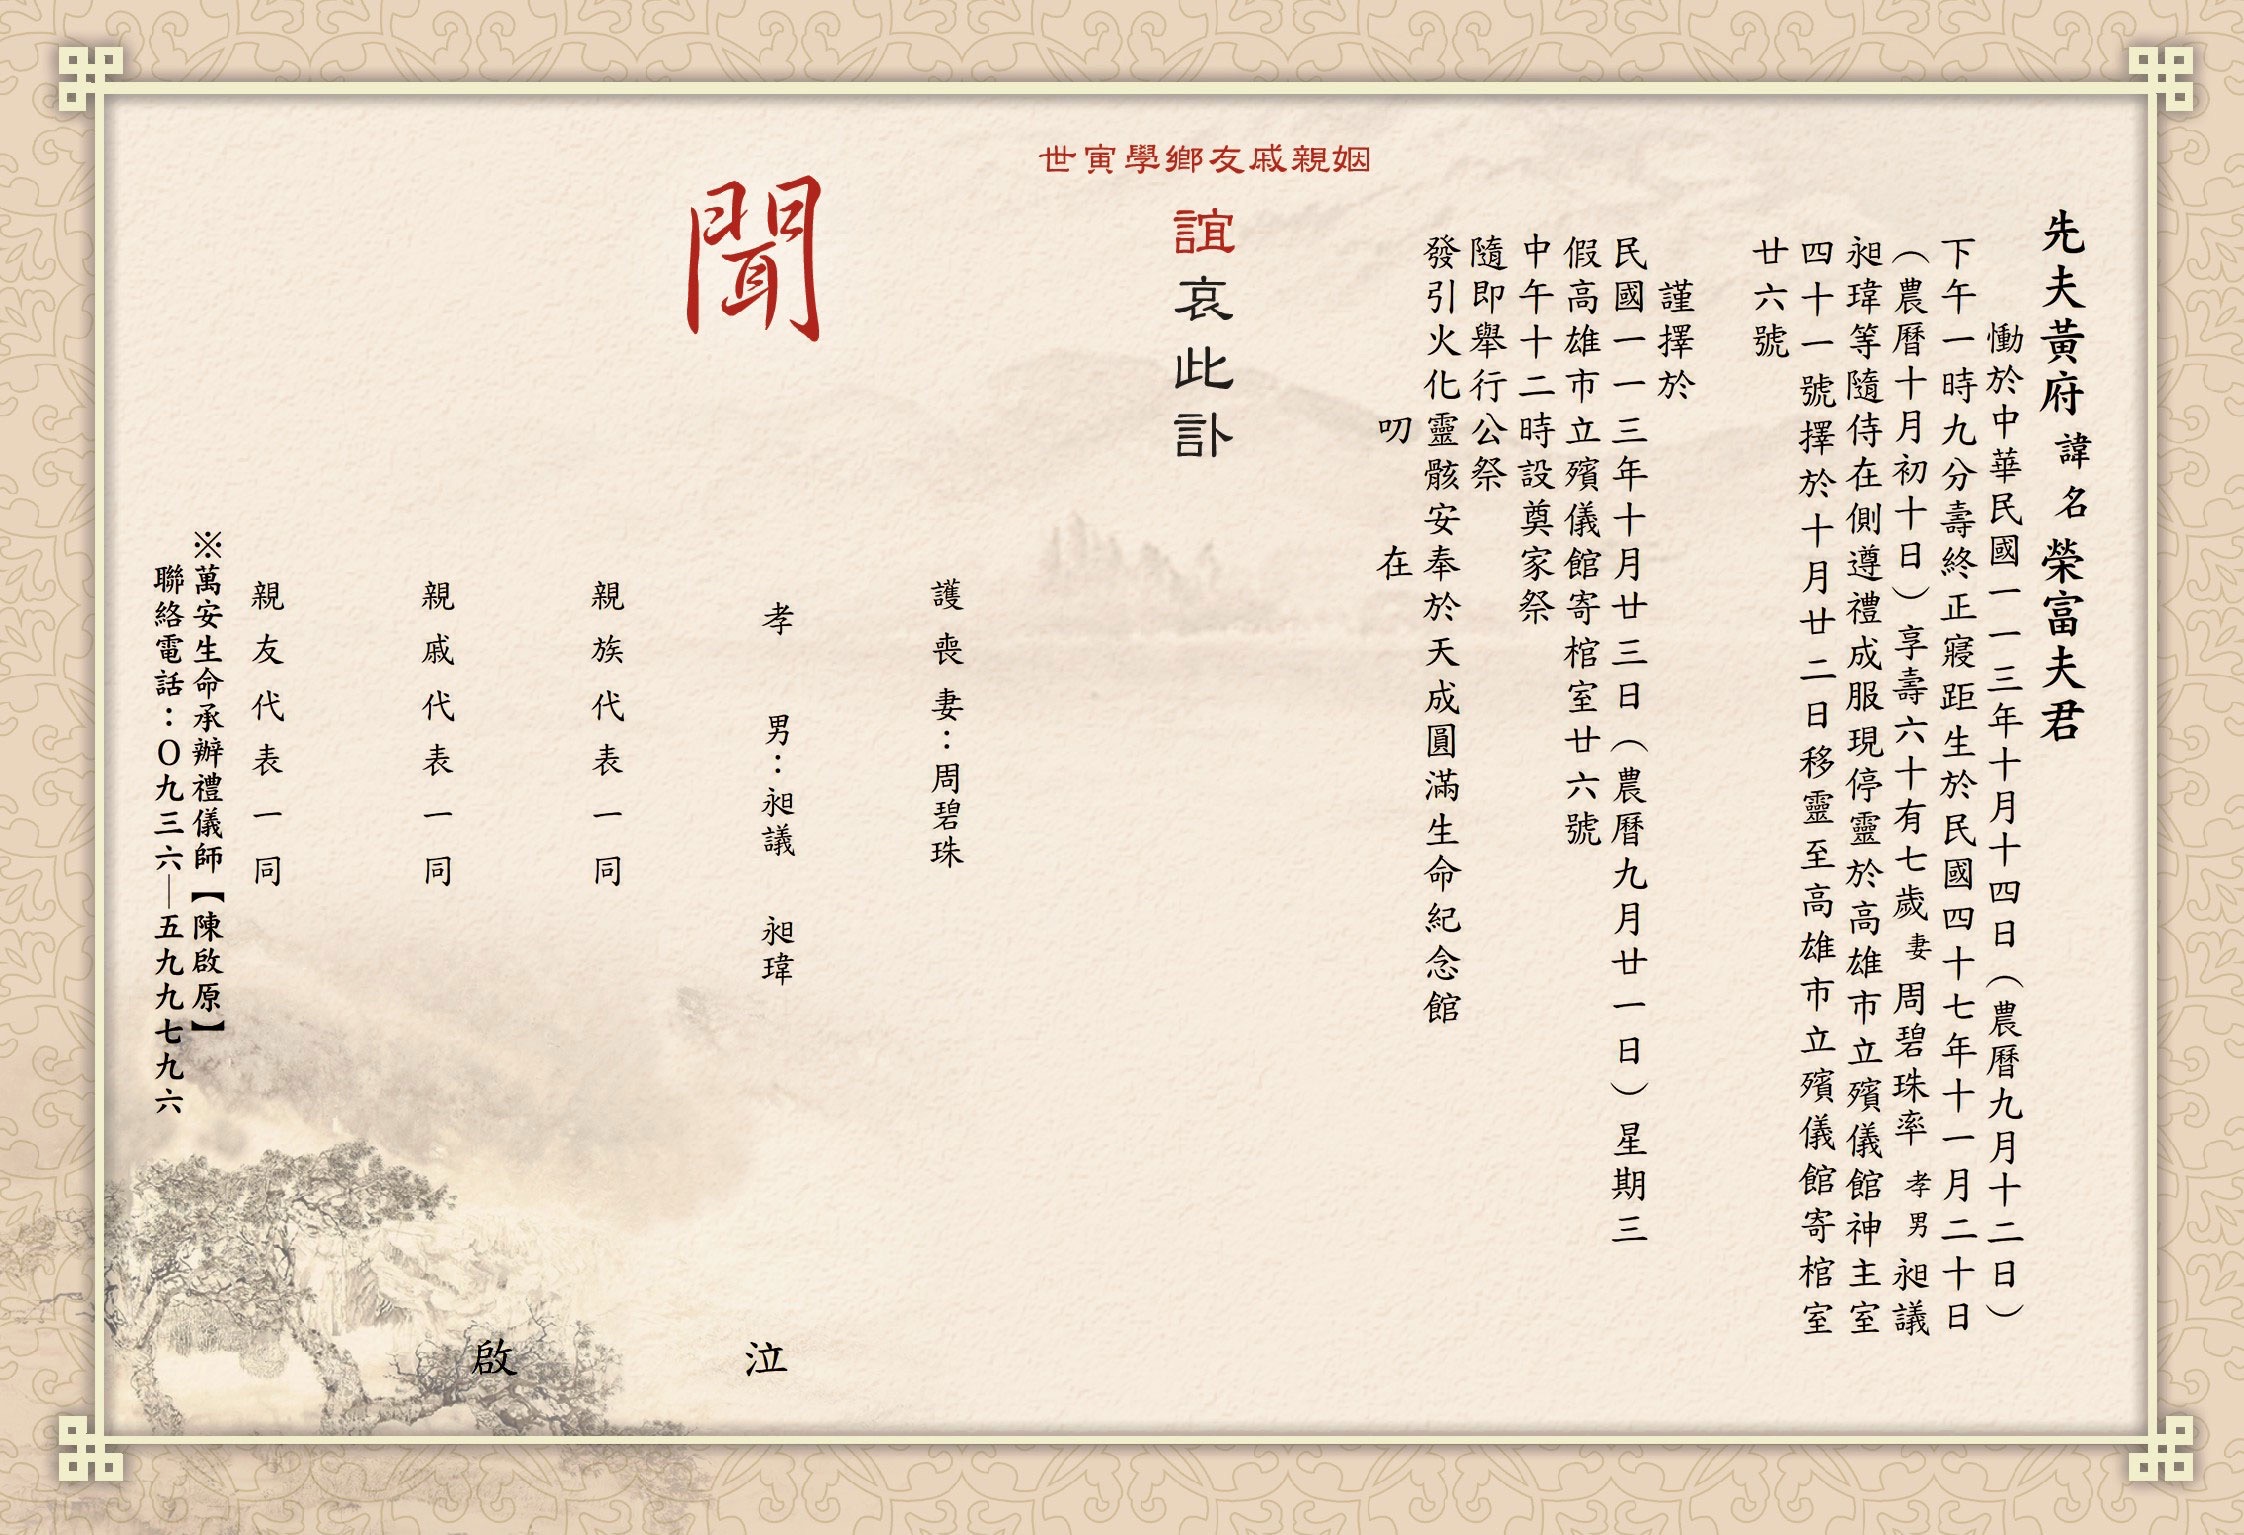 先夫黃府諱名榮富夫君
慟於中華民國一一三年十月十四日（農曆九月十二日）
下午一時九分壽終正寢距生於民國四十七年十一月二十日
（農曆十月初十日）享壽六十有七歲妻周碧珠率孝男昶議
昶瑋等隨侍在側遵禮成服現停靈於高雄市立殯儀館神主室
四十一號擇於十月廿二日移靈至高雄市立殯儀館寄棺室
廿六號
謹擇於
民國一一三年十月廿三日（農曆九月廿一日）星期三
假高雄市立殯儀館寄棺室廿六號
中午十二時設奠家祭
隨即舉行公祭
發引火化靈骸安奉於天成圓滿生命紀念館
叨在
姻親戚友鄉學寅世
誼哀此訃
聞
護喪妻：周碧珠
孝男：昶議 昶瑋
親族代表一同
親戚代表一同
親友代表一同
泣
啟
※萬安生命承辦禮儀師【陳啟原】
聯絡電話：０九三六—五九九七九六